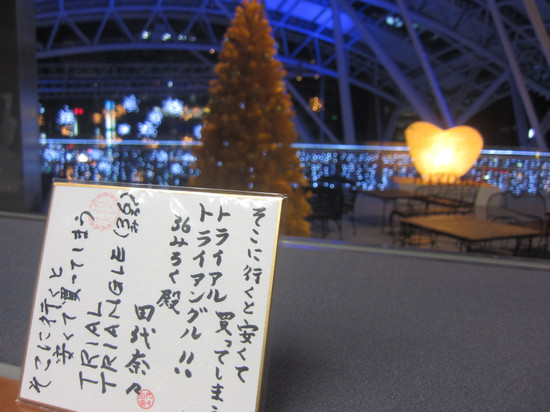 そこに行くと安くて
トライアル 買ってしまう
トライアングル!!
36みろく殿
田代奈々
TRIANGLE (38才)
TRIAL
安くて買ってしまう
そこに行くと